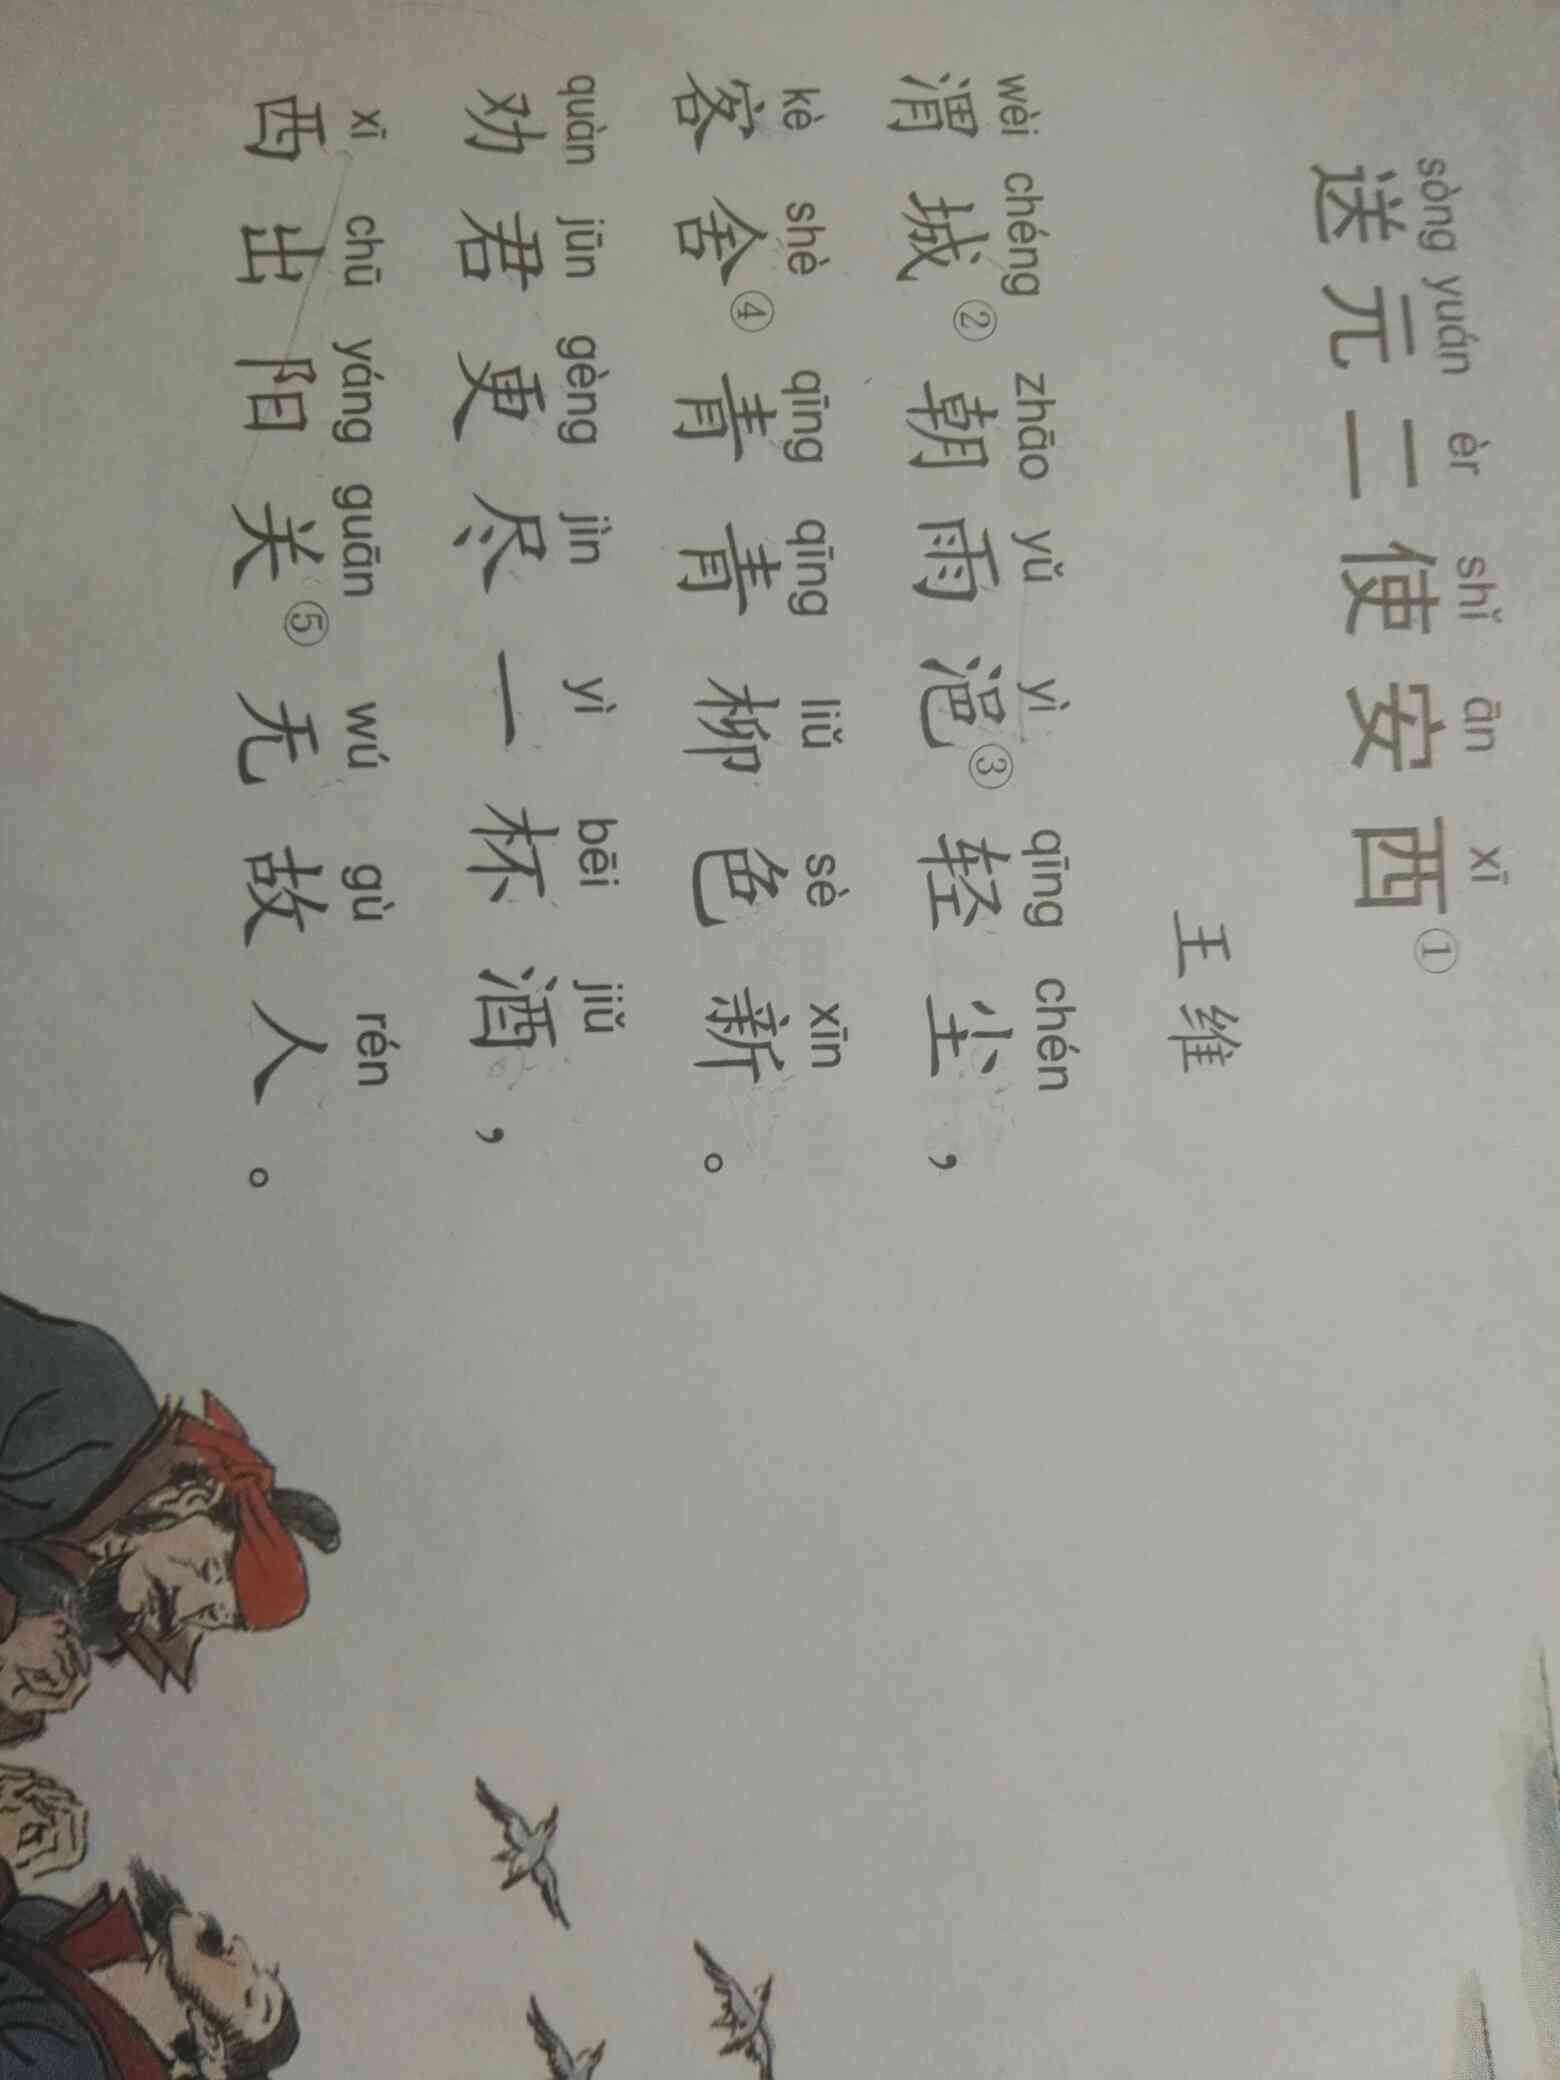 sòng yuán èr shǐ ān xī
送元二使安西①
王维
wèi chéng zhāo yǔ yì qīng chén
渭城②朝雨浥③轻尘，
kè shè qīng qīng liǔ sè xīn
客舍④青青柳色新。
quàn jūn gèng jìn yì bēi jiǔ
劝君更尽一杯酒，
xī chū yáng guān wú gù rén
西出阳关⑤无故人。